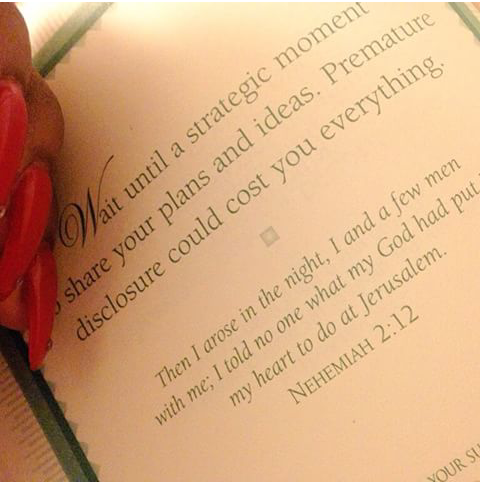 Wait until a strategic moment
to share your plans and ideas. Premature
disclosure could cost you everything.
Then I arose in the night, I and a few men
with me; I told no one what my God had put
my heart to do at Jerusalem.
NEHEMIAH 2:12
YOUR